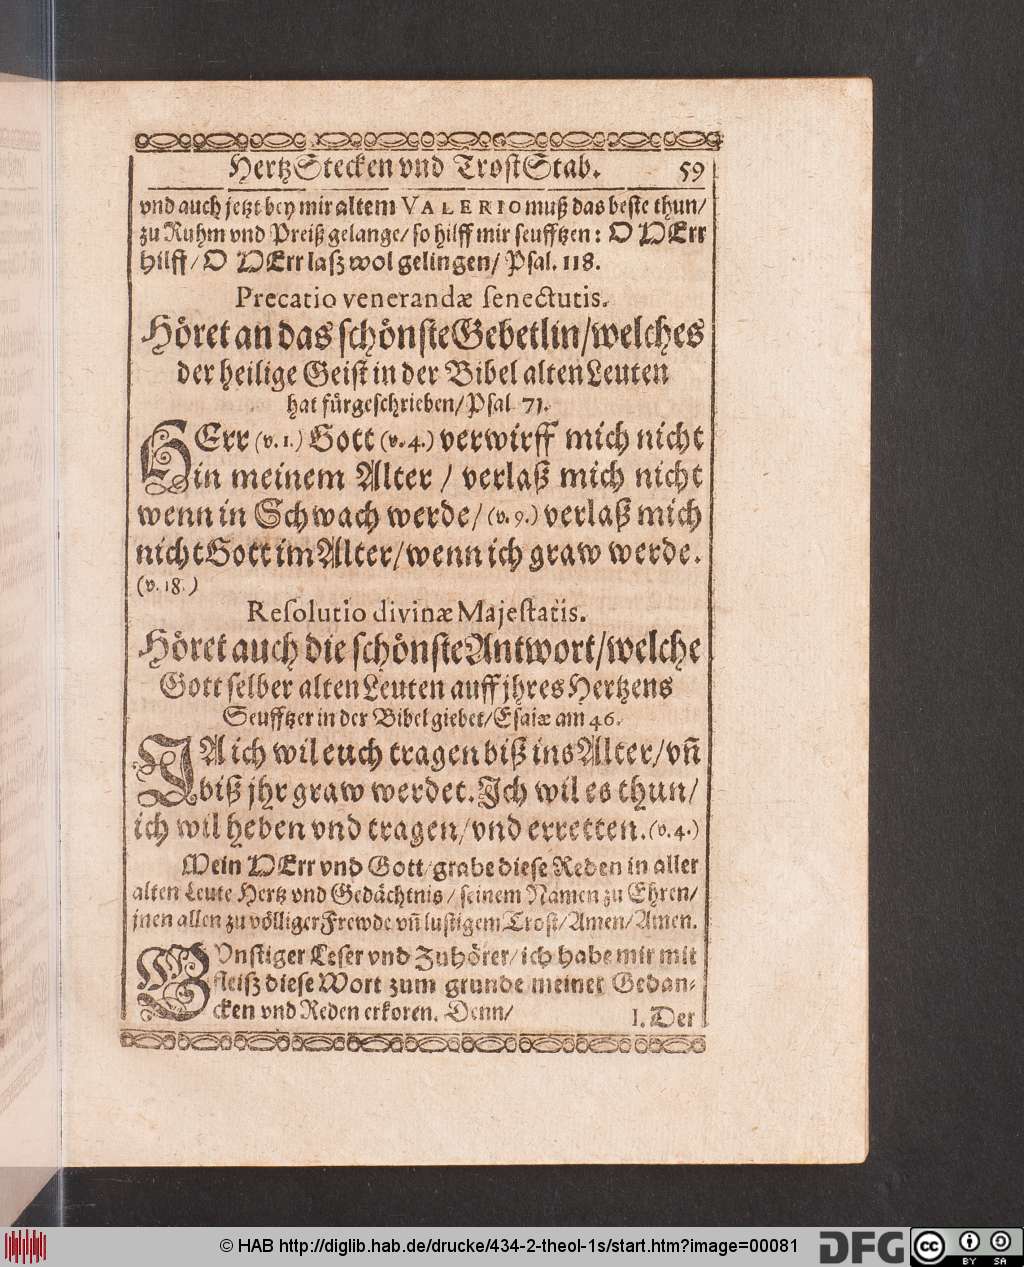 HertzStecken vnd TrostStab. 59
vnd auch jetzt bey mir altem VALERIO muß das beste thun/
zu Ruhm vnd Preiß gelange/ so hilff mir seufftzen: O HErr
hilff/ O HErr laß wol gelingen/ Psal. 118.
Precatio venerandæ senectutis.
Höret an das schönste Gebetlin/welches
der heilige Geist in der Bibel alten Leuten
hat fürgeschrieben/Psal 71.
HErr (v. 1.) Gott (v. 4.) verwirff mich nicht
in meinem Alter / verlaß mich nicht
wenn in Schwach werde/ (v. 9.) verlaß mich
nicht Gott im Alter/wenn ich graw werde.
(v. 18.)
Resolutio divinæ Majestatis.
Höret auch die schönste Antwort/welche
Gott selber alten Leuten auff jhres Hertzens
Seufftzer in der Bibel giebet/Esaiæ am 46.
JA ich wil euch tragen biß ins Alter/vñ
biß jhr graw werdet. Jch wil es thun/
ich wil heben vnd tragen/vnd erretten. (v. 4.)
Mein HErr vnd Gott/grabe diese Reden in aller
alten Leute Hertz vnd Gedächtnis/ seinem Namen zu Ehren/
jnen allen zu völliger Frewde vñ lustigem Trost/Amen/Amen.
GVnstiger Leser vnd Zuhörer/ich habe mir mit
fleiß diese Wort zum grunde meiner Gedan-
cken vnd Reden erkoren. Denn/
I. Der
© HAB http://diglib.hab.de/drucke/434-2-theol-1s/start.htm?image=00081
DFG
cc BY SA